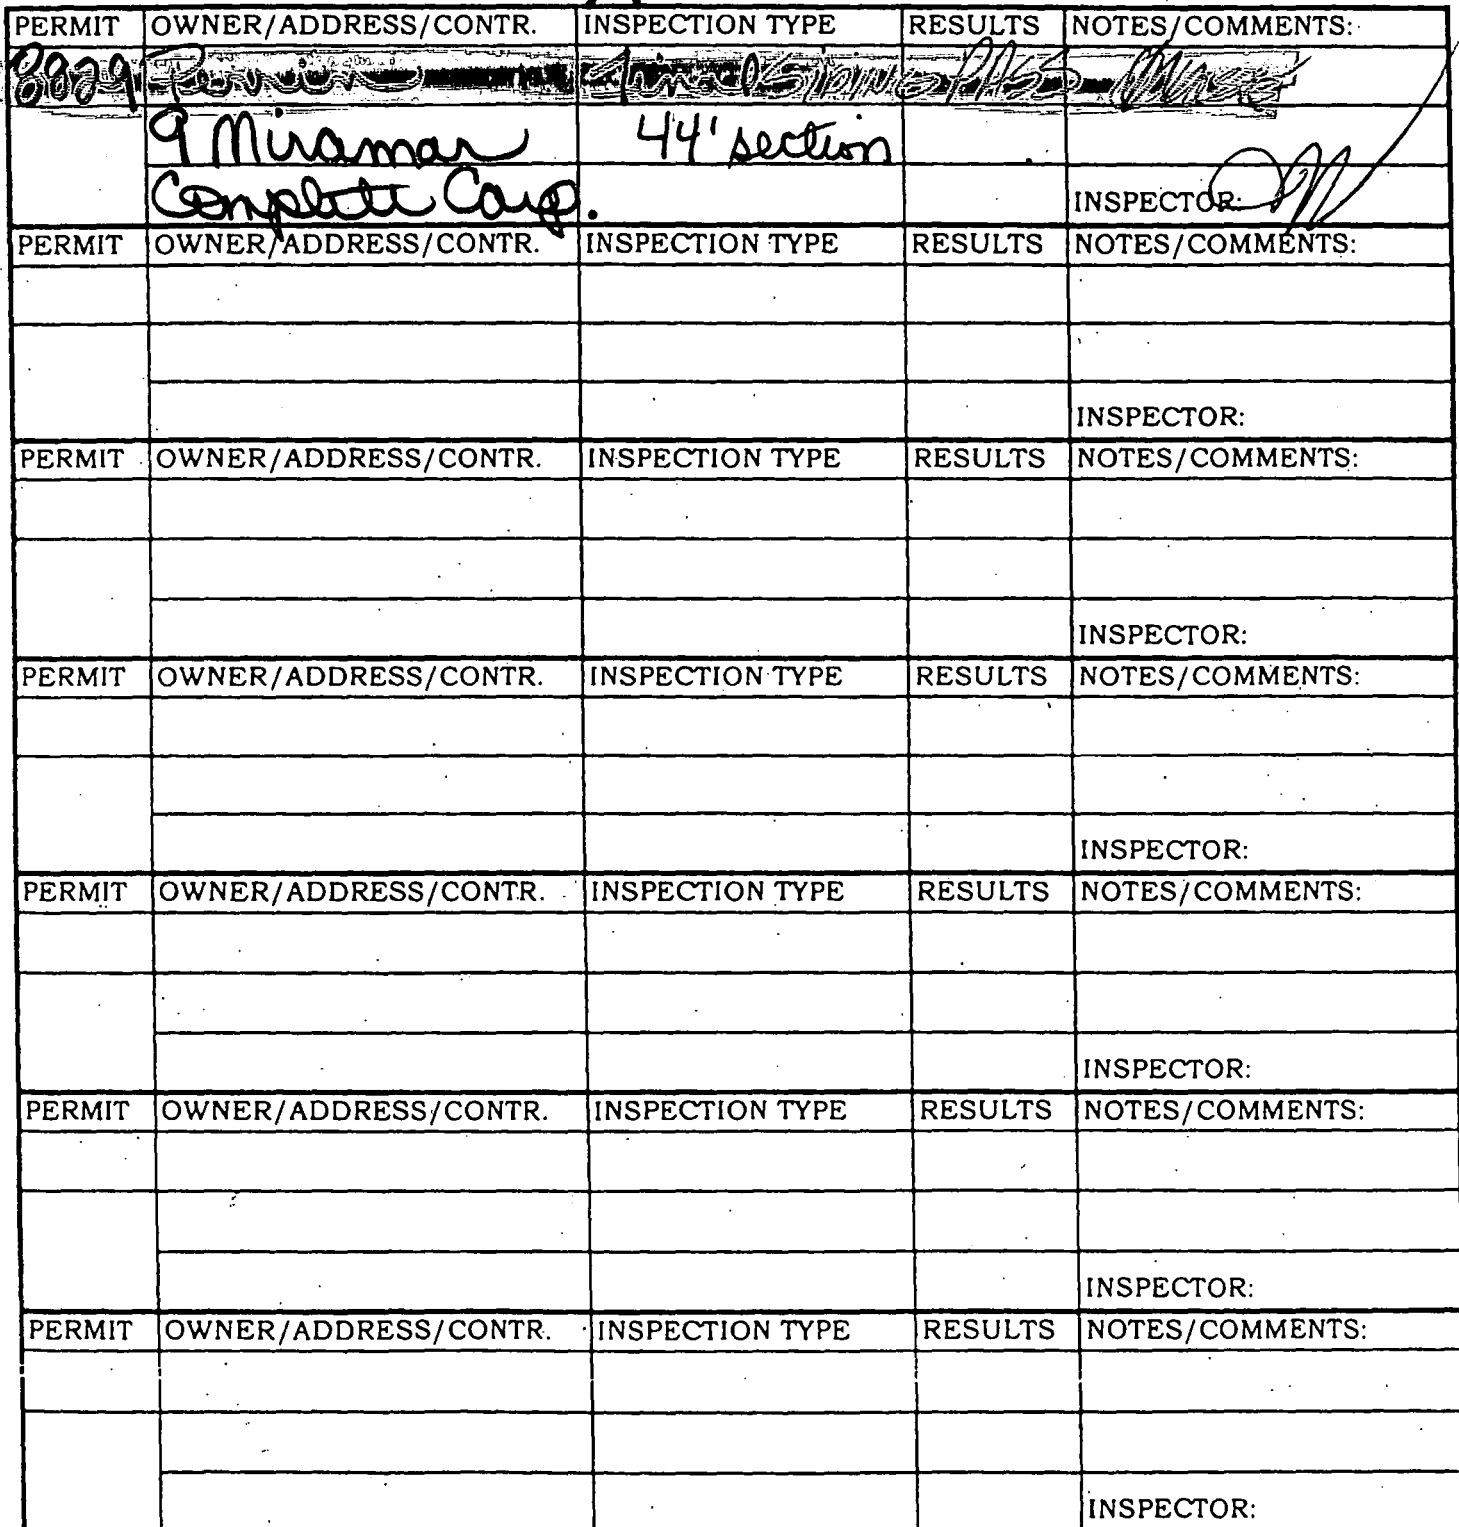 PERMIT OWNER/ADDRESS/CONTR. INSPECTION TYPE RESULTS NOTES/COMMENTS:
8829 PASS
9 Miramar 44' section
Complete Carp. INSPECTOR:
PERMIT OWNER/ADDRESS/CONTR. INSPECTION TYPE RESULTS NOTES/COMMENTS:
INSPECTOR:
PERMIT OWNER/ADDRESS/CONTR. INSPECTION TYPE RESULTS NOTES/COMMENTS:
INSPECTOR:
PERMIT OWNER/ADDRESS/CONTR. INSPECTION TYPE RESULTS NOTES/COMMENTS:
INSPECTOR:
PERMIT OWNER/ADDRESS/CONTR. INSPECTION TYPE RESULTS NOTES/COMMENTS:
INSPECTOR:
PERMIT OWNER/ADDRESS/CONTR. INSPECTION TYPE RESULTS NOTES/COMMENTS:
INSPECTOR:
PERMIT OWNER/ADDRESS/CONTR. INSPECTION TYPE RESULTS NOTES/COMMENTS:
INSPECTOR: